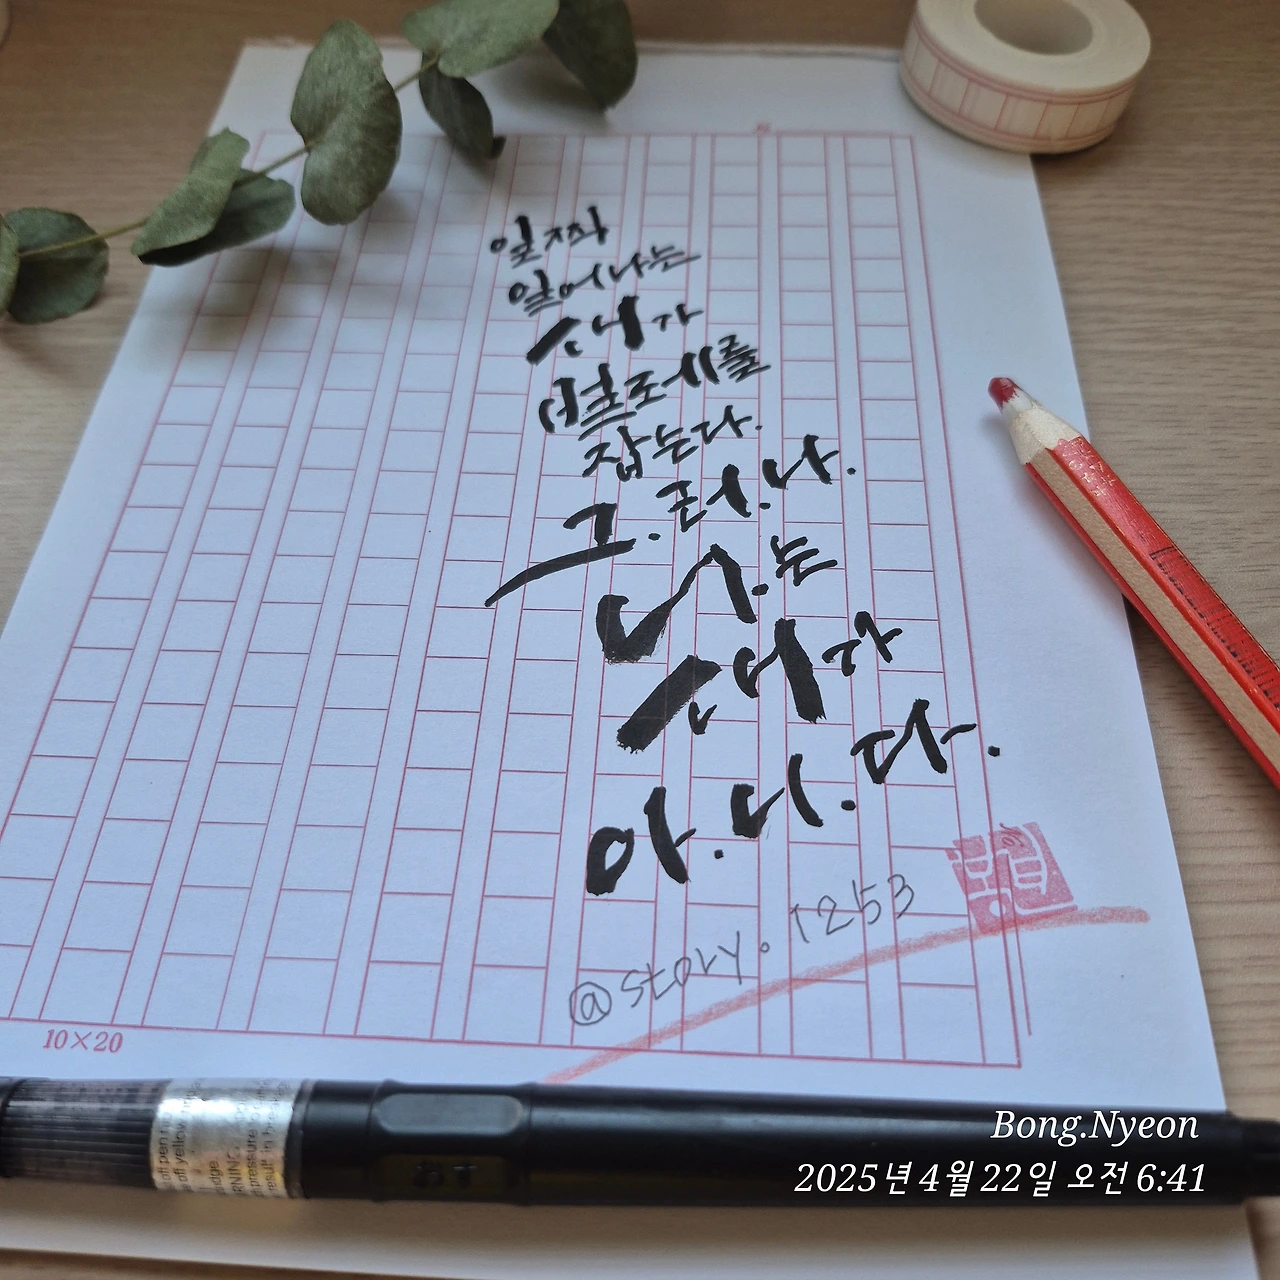 일찍
일어나는
새가
벌레를
잡는다.
그.러.나.
나.는
새가
아.니.다.
@story.1253
10×20
Bong.Nyeon
2025년 4월 22일 오전 6:41